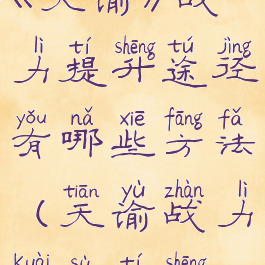 《天谕》战
lì tí shēng tú jìng
力提升途径
yǒu nǎ xiē fāng fǎ
有哪些方法
tiān yù zhàn lì
（天谕战力
kuài sù tí shēng